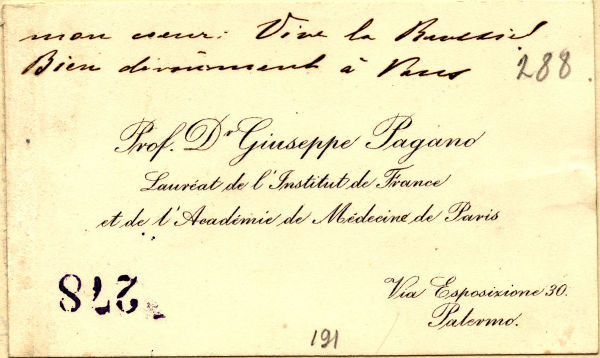 mon cœur: Vive la Russie!
Bien dévoûment à Vous 288
Prof. Dr Giuseppe Pagano
Lauréat de l'Institut de France
et de l'Académie de Médecine de Paris
Via Esposizione 30.
Palermo.
191